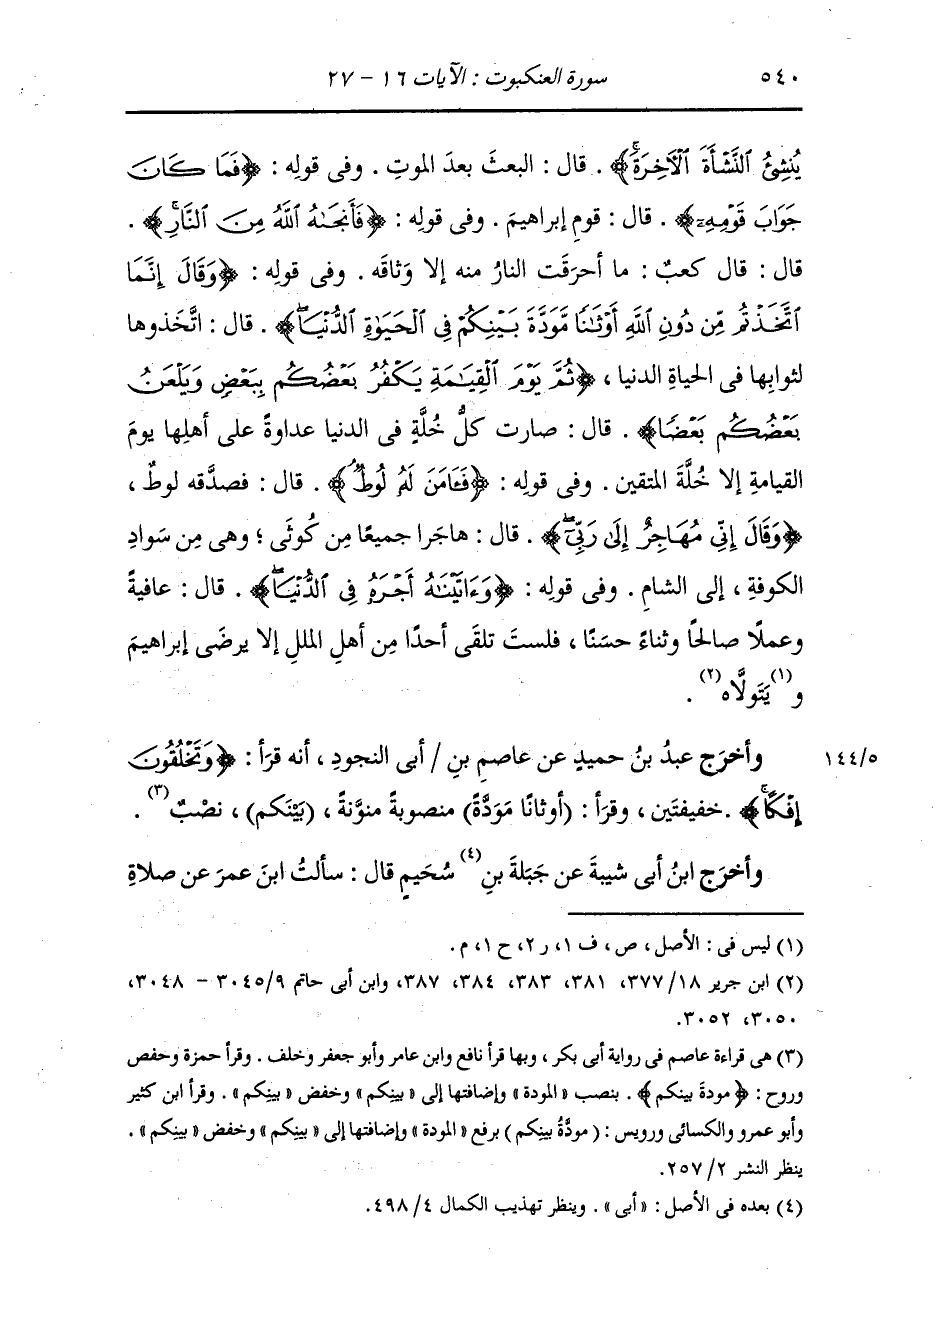 ٥٤٠ سورة العنكبوت : الآيات ١٦ - ٢٧
يُنشِئُ ٱلنَّشْأَةَ ٱلْأَخِرَةَۚ﴾ . قال : البعثَ بعدَ الموتِ . وفى قولِه : ﴿فَمَا كَانَ
جَوَابَ قَوْمِهِۦ﴾ . قال : قومِ إبراهيمَ . وفى قولِه : ﴿فَأَنجَىٰهُ ٱللَّهُ مِنَ ٱلنَّارِۚ﴾ .
قال : قال كعبٌ : ما أحرَقت النارُ منه إلا وَثاقَه . وفى قولِه : ﴿وَقَالَ إِنَّمَا
ٱتَّخَذْتُم مِّن دُونِ ٱللَّهِ أَوْثَـٰنًا مَّوَدَّةَ بَيْنِكُمْ فِى ٱلْحَيَوٰةِ ٱلدُّنْيَاۖ﴾ . قال : اتَّخَذوها
لثوابِها فى الحياةِ الدنيا ، ﴿ثُمَّ يَوْمَ ٱلْقِيَـٰمَةِ يَكْفُرُ بَعْضُكُم بِبَعْضٍ وَيَلْعَنُ
بَعْضُكُم بَعْضًا﴾ . قال : صارت كلُّ خُلَّةٍ فى الدنيا عداوةً على أهلِها يومَ
القيامةِ إلا خُلَّةَ المتقين . وفى قولِه : ﴿فَـَٔامَنَ لَهُۥ لُوطٌۘ﴾ . قال : فصدَّقه لوطٌ ،
﴿وَقَالَ إِنِّى مُهَاجِرٌ إِلَىٰ رَبِّىٓۖ﴾ . قال : هاجَرا جميعًا مِن كُوثَى ؛ وهى مِن سَوادِ
الكوفةِ ، إلى الشامِ . وفى قولِه : ﴿وَءَاتَيْنَـٰهُ أَجْرَهُۥ فِى ٱلدُّنْيَاۖ﴾ . قال : عافيةً
وعملًا صالحًا وثناءً حسَنًا ، فلستَ تلقَى أحدًا مِن أهلِ المللِ إلا يرضَى إبراهيمَ
و(١)يَتَولَّاه(٢) .
وأخرَج عبدُ بنُ حميدٍ عن عاصمِ بنِ / أبى النجودِ ، أنه قرَأ : ﴿وَتَخْلُقُونَ ١٤٤/٥
إِفْكًاۚ﴾ .خفيفتَين ، وقرَأ : (أوثانًا مَوَدَّةً) منصوبةً منوَّنةً ، (بَيْنَكم) ، نصْبٌ(٣) .
وأخرَج ابنُ أبى شيبةَ عن جَبَلةَ بنِ(٤) سُحَيمٍ قال : سألتُ ابنَ عمرَ عن صلاةِ
(١) ليس فى : الأصل ، ص ، ف ١، ر ٢، ح ١، م .
(٢) ابن جرير ١٨/ ٣٧٧، ٣٨١، ٣٨٣، ٣٨٤، ٣٨٧، وابن أبى حاتم ٣٠٤٥/٩ - ٣٠٤٨،
٣٠٥٠، ٣٠٥٢.
(٣) هى قراءة عاصم فى رواية أبى بكر ، وبها قرأ نافع وابن عامر وأبو جعفر وخلف . وقرأ حمزة وحفص
وروح : ﴿مودةَ بينكم﴾ . بنصب «المودة» وإضافتها إلى «بينكم» وخفض «بينكم» . وقرأ ابن كثير
وأبو عمرو والكسائى ورويس : (مودَّةُ بينِكم) برفع «المودة» وإضافتها إلى «بينكم» وخفض «بينكم» .
ينظر النشر ٢/ ٢٥٧.
(٤) بعده فى الأصل : «أبى» . وينظر تهذيب الكمال ٤/ ٤٩٨.